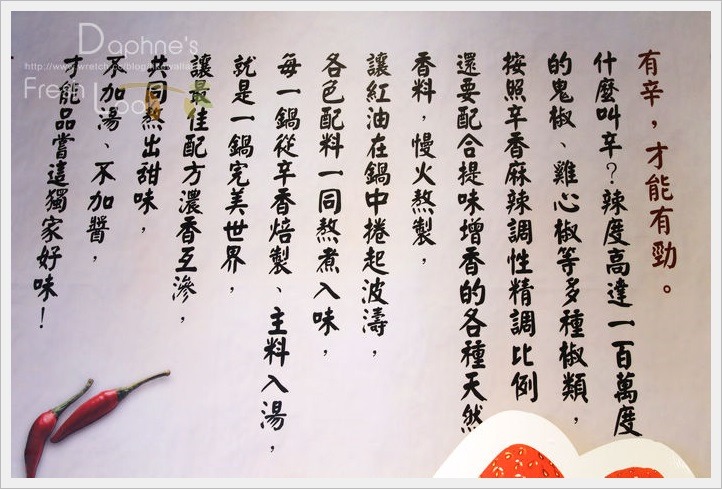 有辛，才能有勁。
什麼叫辛？辣度高達一百萬度
的鬼椒、雞心椒等多種椒類，
按照辛香麻辣調性精調比例
還要配合提味增香的各種天然
香料，慢火熬製，
讓紅油在鍋中捲起波濤，
各色配料一同熬煮入味，
每一鍋從辛香焙製、主料入湯，
就是一鍋完美世界，
讓最佳配方濃香互滲，
共同熬出甜味，
不加湯、不加醬，
才能品嘗這獨家好味！
Daphne's
Fresh Look